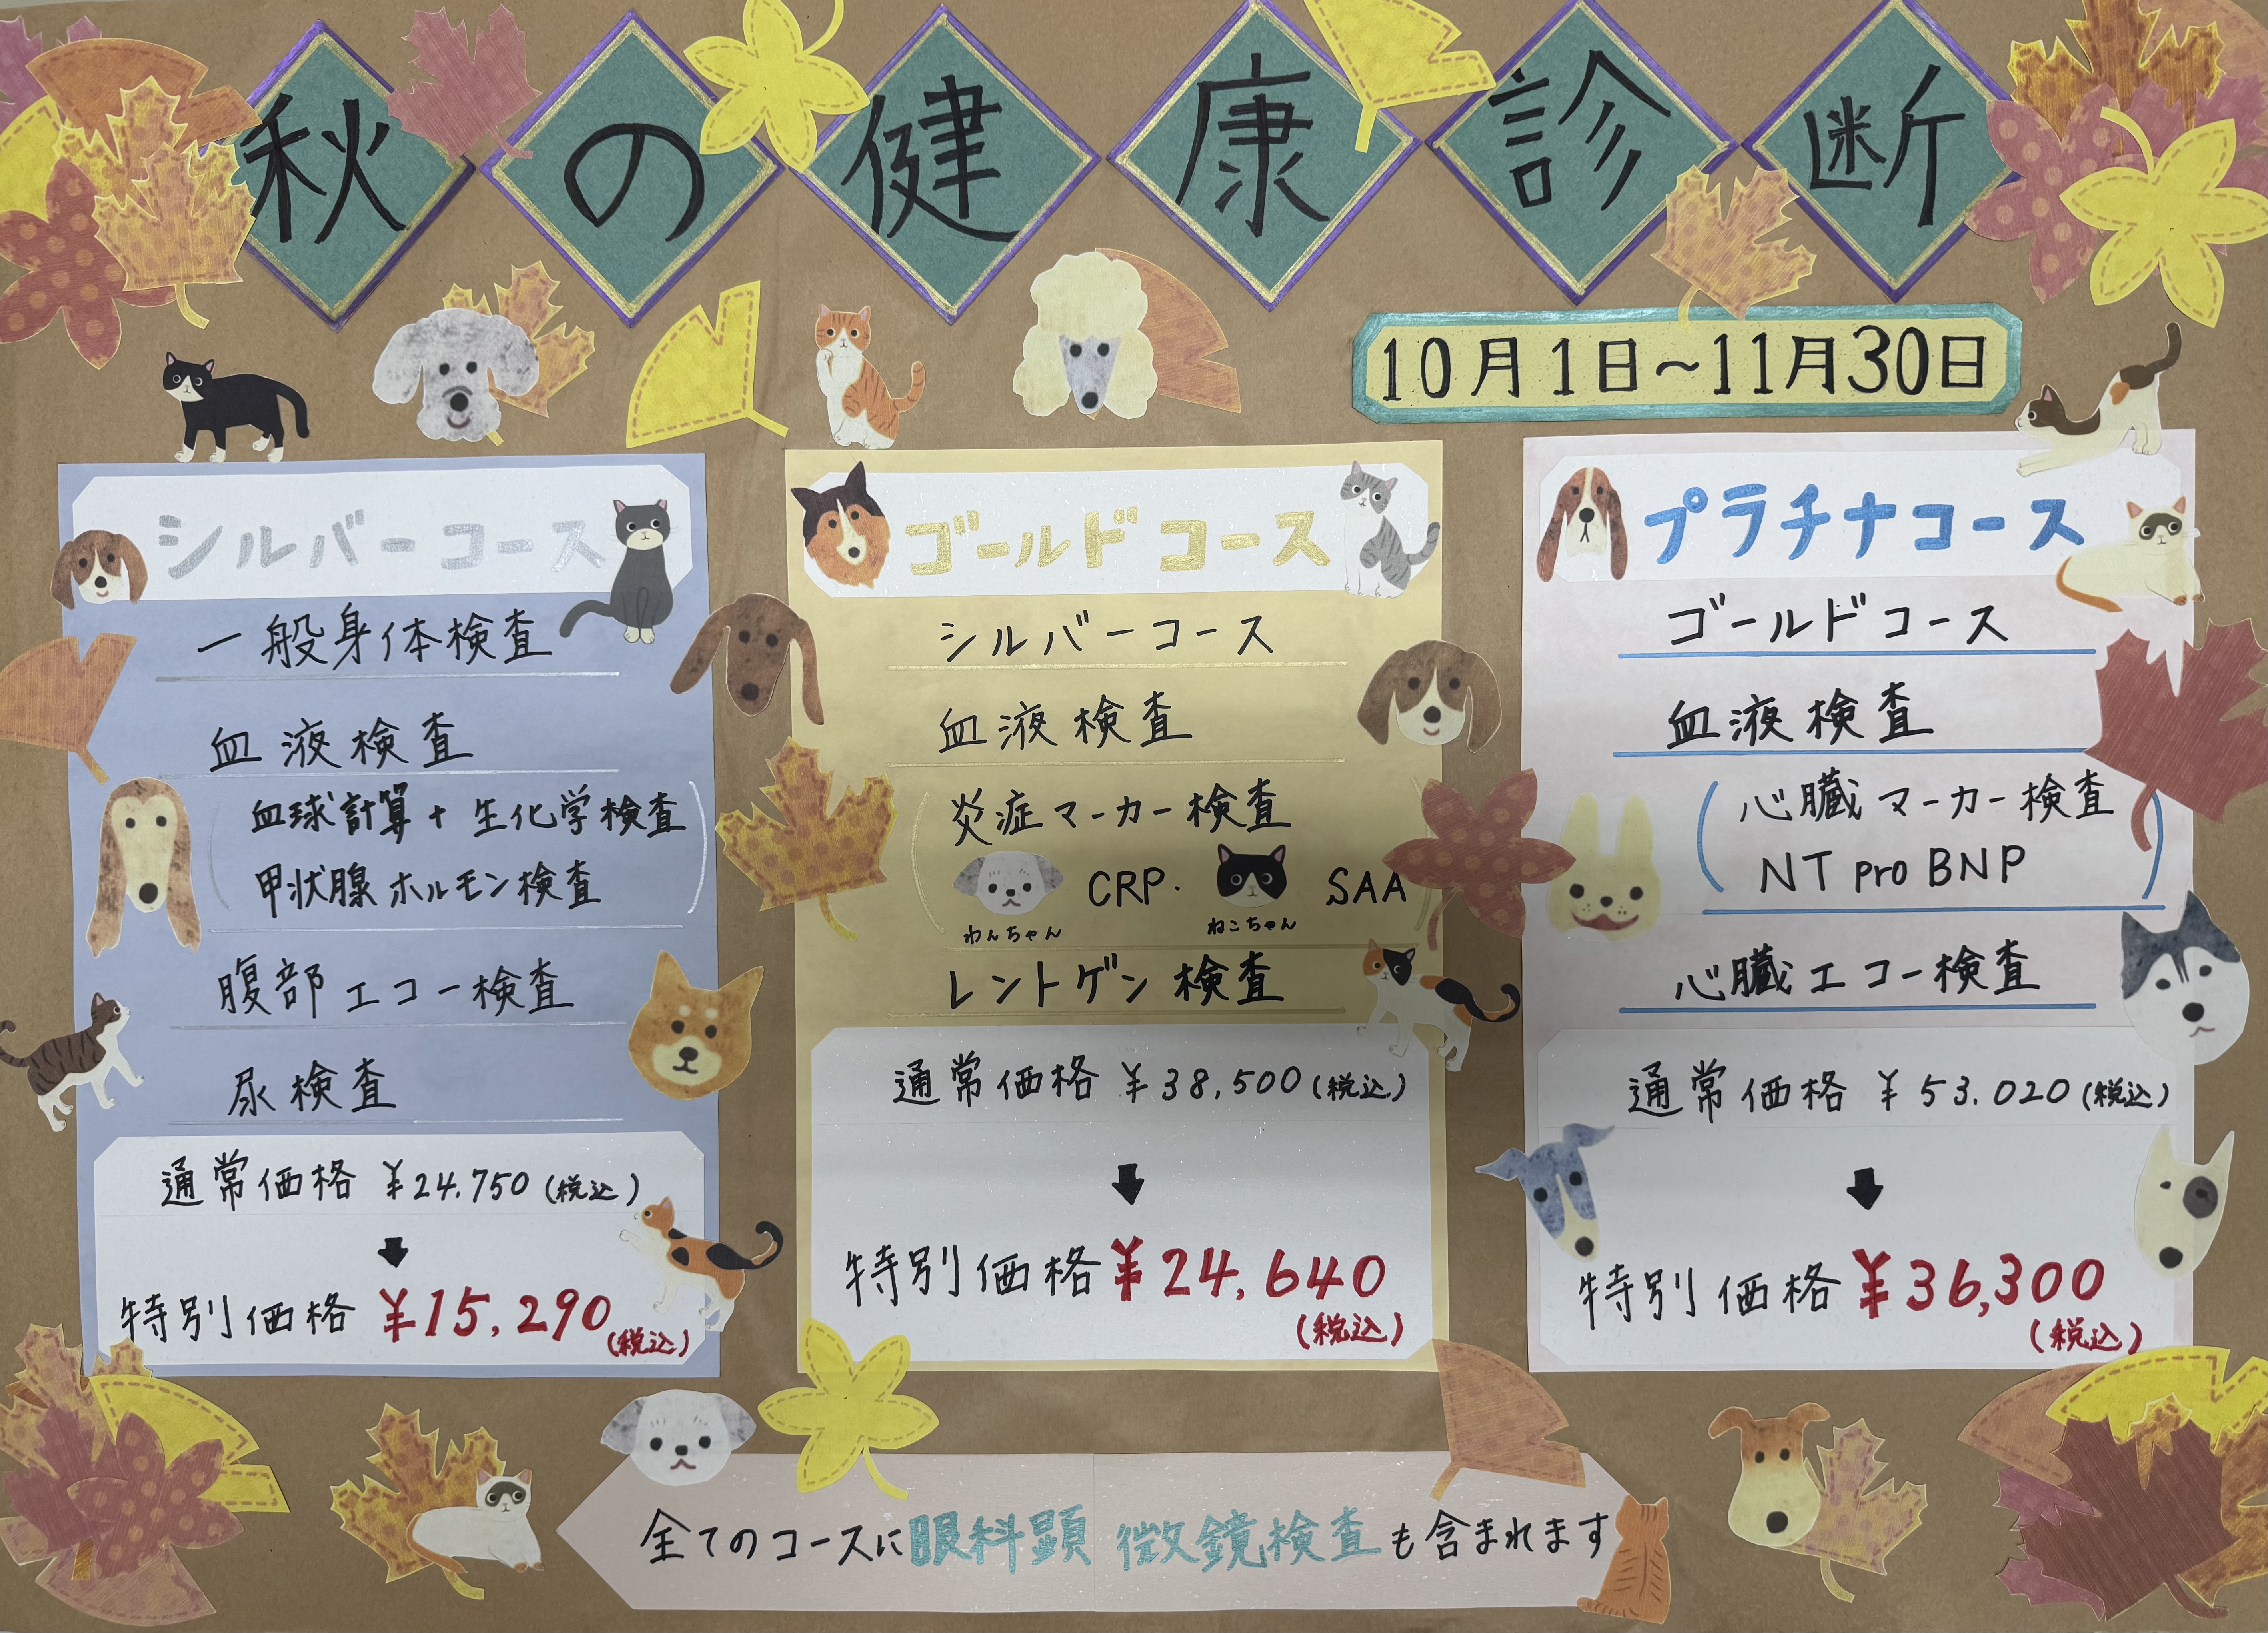 秋の健康診断
10月1日~11月30日
シルバーコース
一般身体検査
血液検査
血球計算+生化学検査
甲状腺ホルモン検査
腹部エコー検査
尿検査
通常価格 ¥24.750(税込)
⬇
特別価格 ¥15,290(税込)
ゴールドコース
シルバーコース
血液検査
炎症マーカー検査
CRP・ SAA
わんちゃん ねこちゃん
レントゲン検査
通常価格 ¥38,500(税込)
⬇
特別価格 ¥24,640
(税込)
プラチナコース
ゴールドコース
血液検査
(心臓マーカー検査
NT pro BNP)
心臓エコー検査
通常価格 ¥53.020(税込)
⬇
特別価格 ¥36,300
(税込)
全てのコースに眼科顕微鏡検査も含まれます